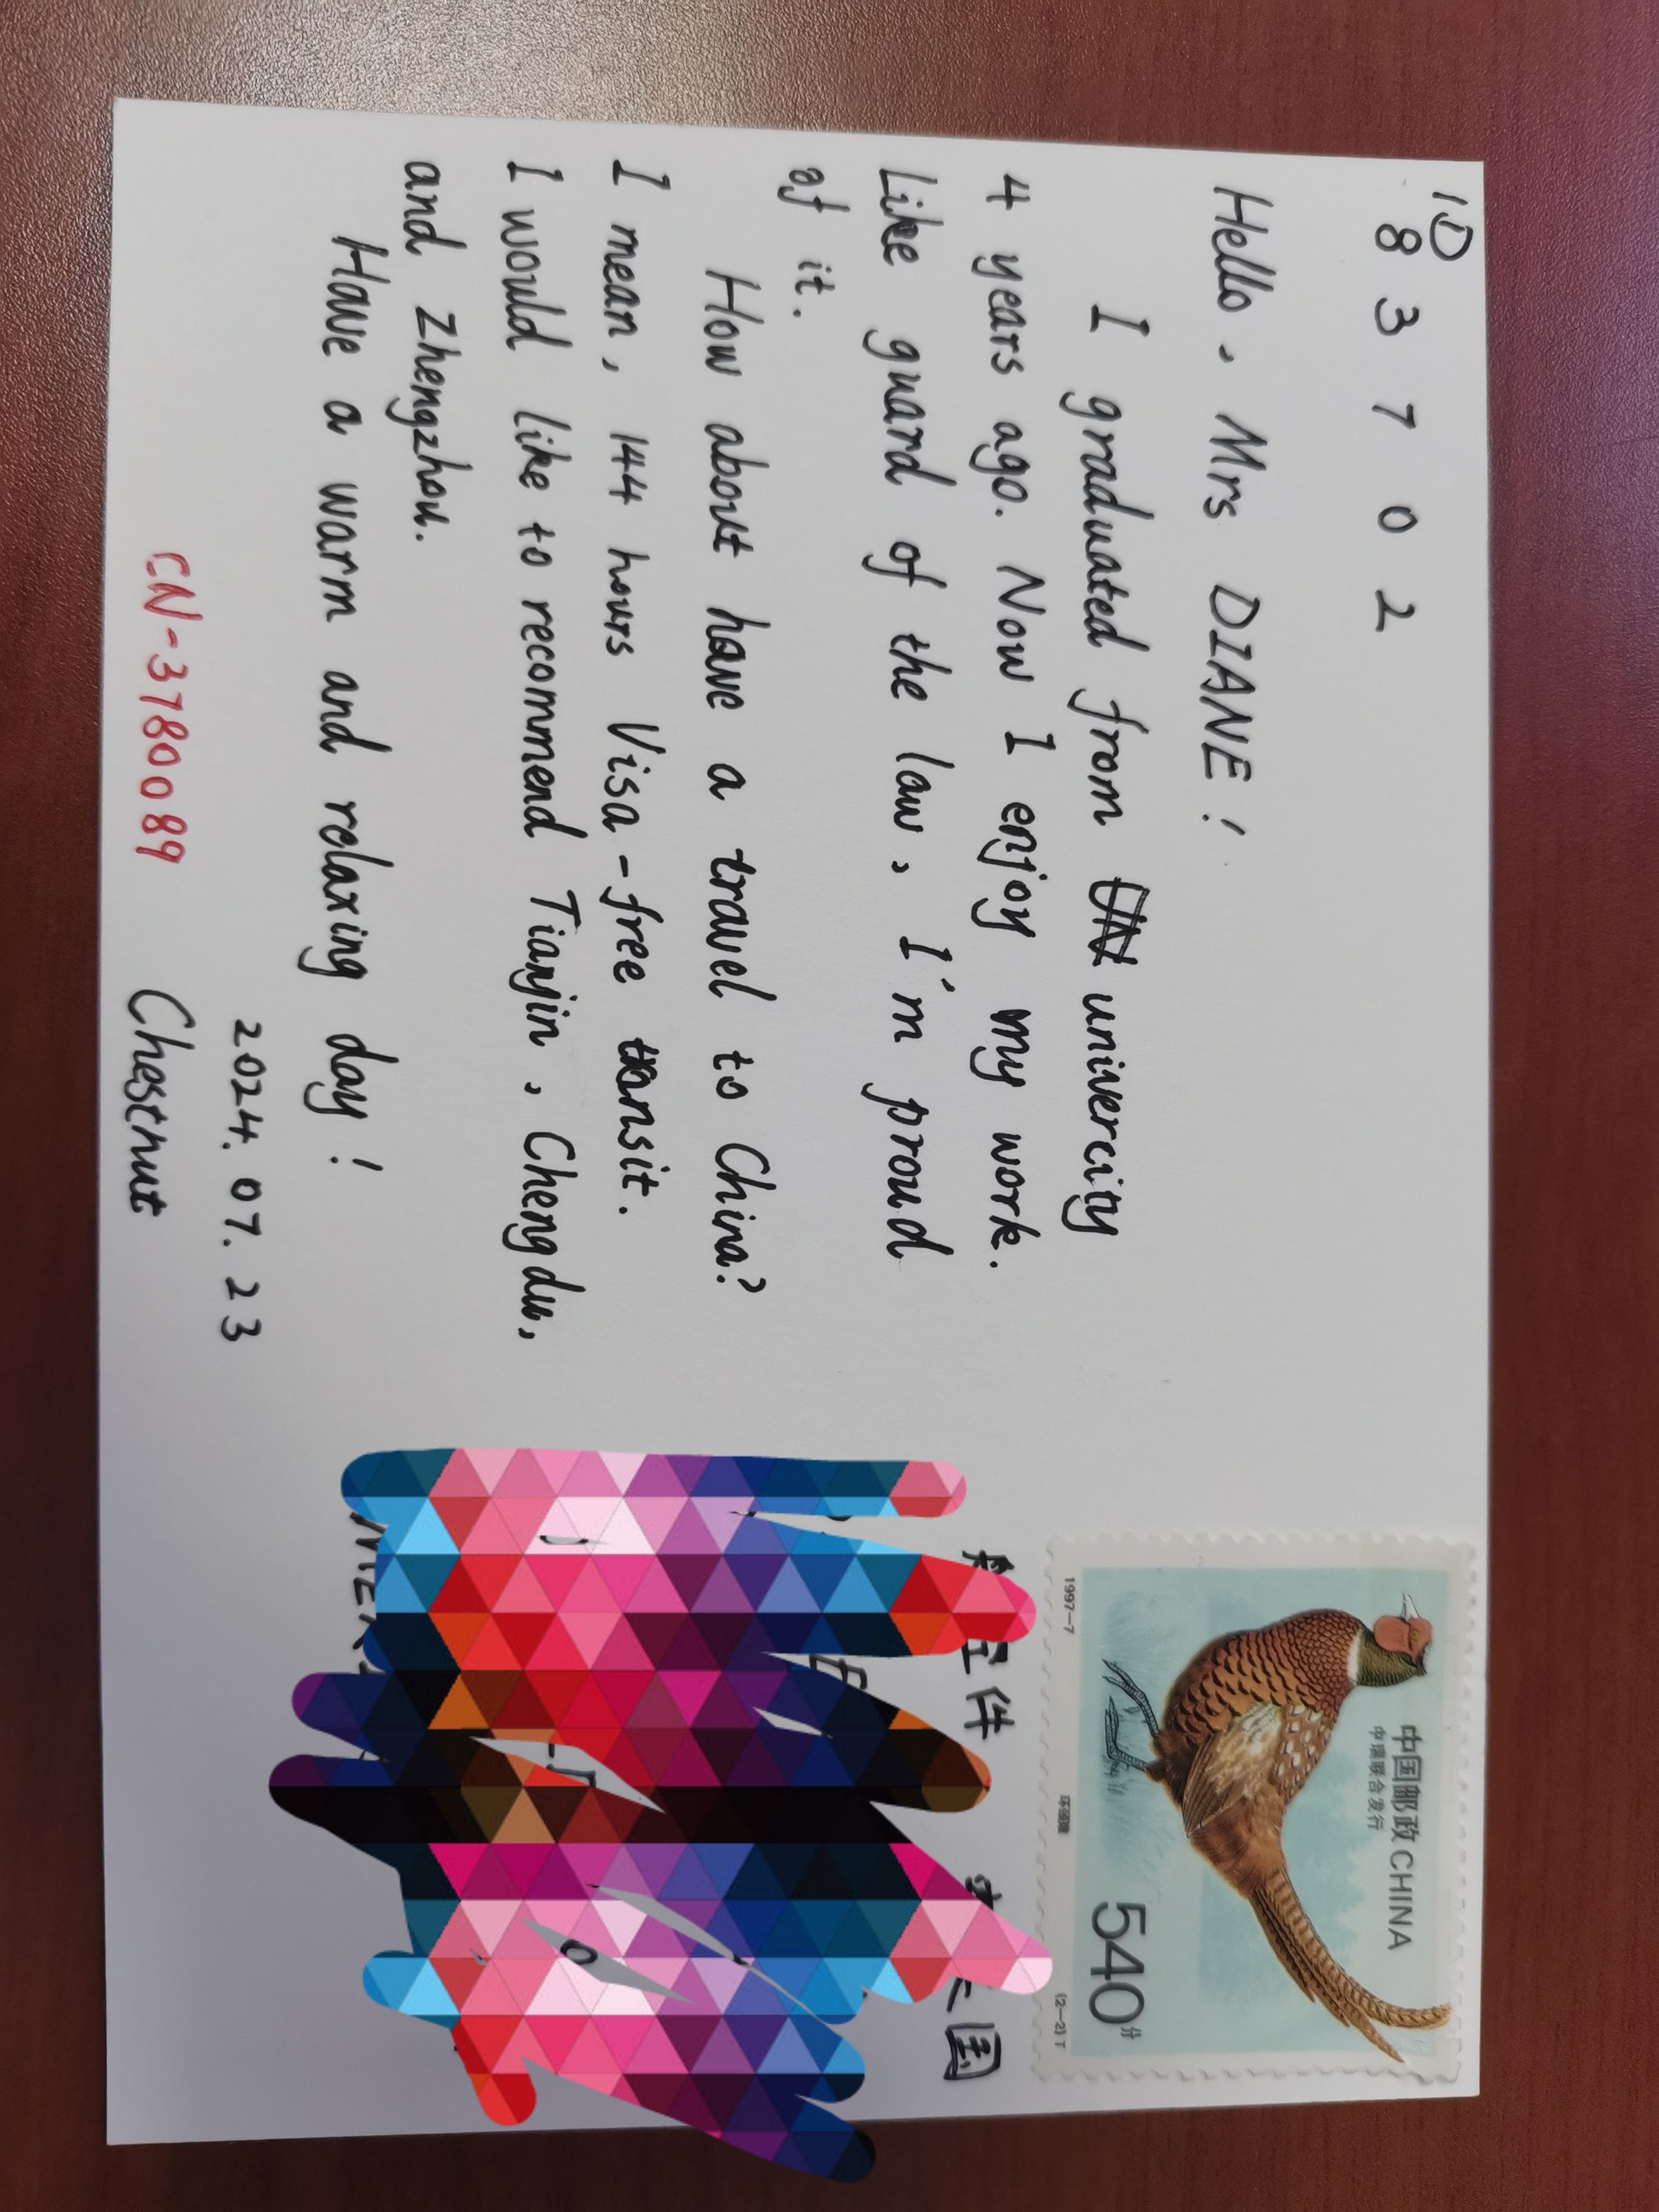 ID
8 3 7 0 2
Hello, Mrs DIANE!
I graduated from univercity
4 years ago. Now I enjoy my work.
Like guard of the law, I'm proud
of it.
How about have a travel to China?
I mean, 144 hours Visa-free transit.
I would like to recommend Tianjin, Chengdu,
and Zhengzhou.
Have a warm and relaxing day!
2024.07.23
CN-3780089 Chestnut
中国邮政 CHINA
中瑞联合发行
540分
1997-7
环颈雉
(2-2)T
件
国